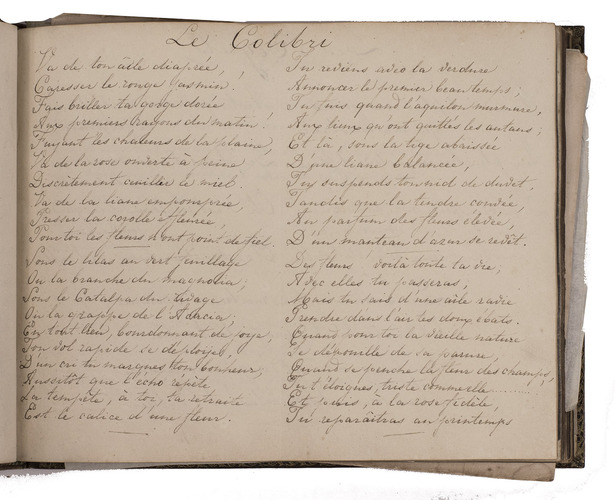 Le Colibri
Va de ton aîle diaprée,
Caresser le rouge jasmin!
Fais briller ta gorge dorée
Aux premiers rayons du matin!
Fuyant les chaleurs de la plaine,
Va de la rose ouverte à peine
Discrètement cueillir le miel.
Va de la liane empourprée,
Presser la corolle effleurée,
Pour toi les fleurs n'ont point de fiel.
Sous le lilas au vert feuillage
Ou la branche du magnolia;
Sous le Catalpa du rivage
Ou la grappe de l'Acacia;
En tout lieu, bourdonnant de joie,
Ton vol rapide se déploie,
D'un cri tu marques ton bonheur;
Aussitôt que l'écho répète
La tempête, à toi, ta retraite
Est le calice d'une fleur.
Tu reviens avec la verdure
Annoncer le premier beau temps;
Tu fuis quand l'aquilon murmure,
Aux lieux qu'ont quittés les autans;
Et là, sous la tige abaissée
D'une liane balancée,
Tu suspends ton nid de duvet,
Tandis que la tendre couvée,
Au parfum des fleurs élevée,
D'un manteau d'azur se revêt.
Des fleurs! voilà toute ta vie;
Avec elles tu passeras,
Mais tu sais d'une aile ravie
Prendre dans l'air tes doux ébats.
Quand pour toi la vieille nature
Se dépouille de sa parure,
Quand se penche la fleur des champs,
Tu t'éloignes, triste comme elle..........
Et puis, à la rose fidèle,
Tu reparaîtras au printemps